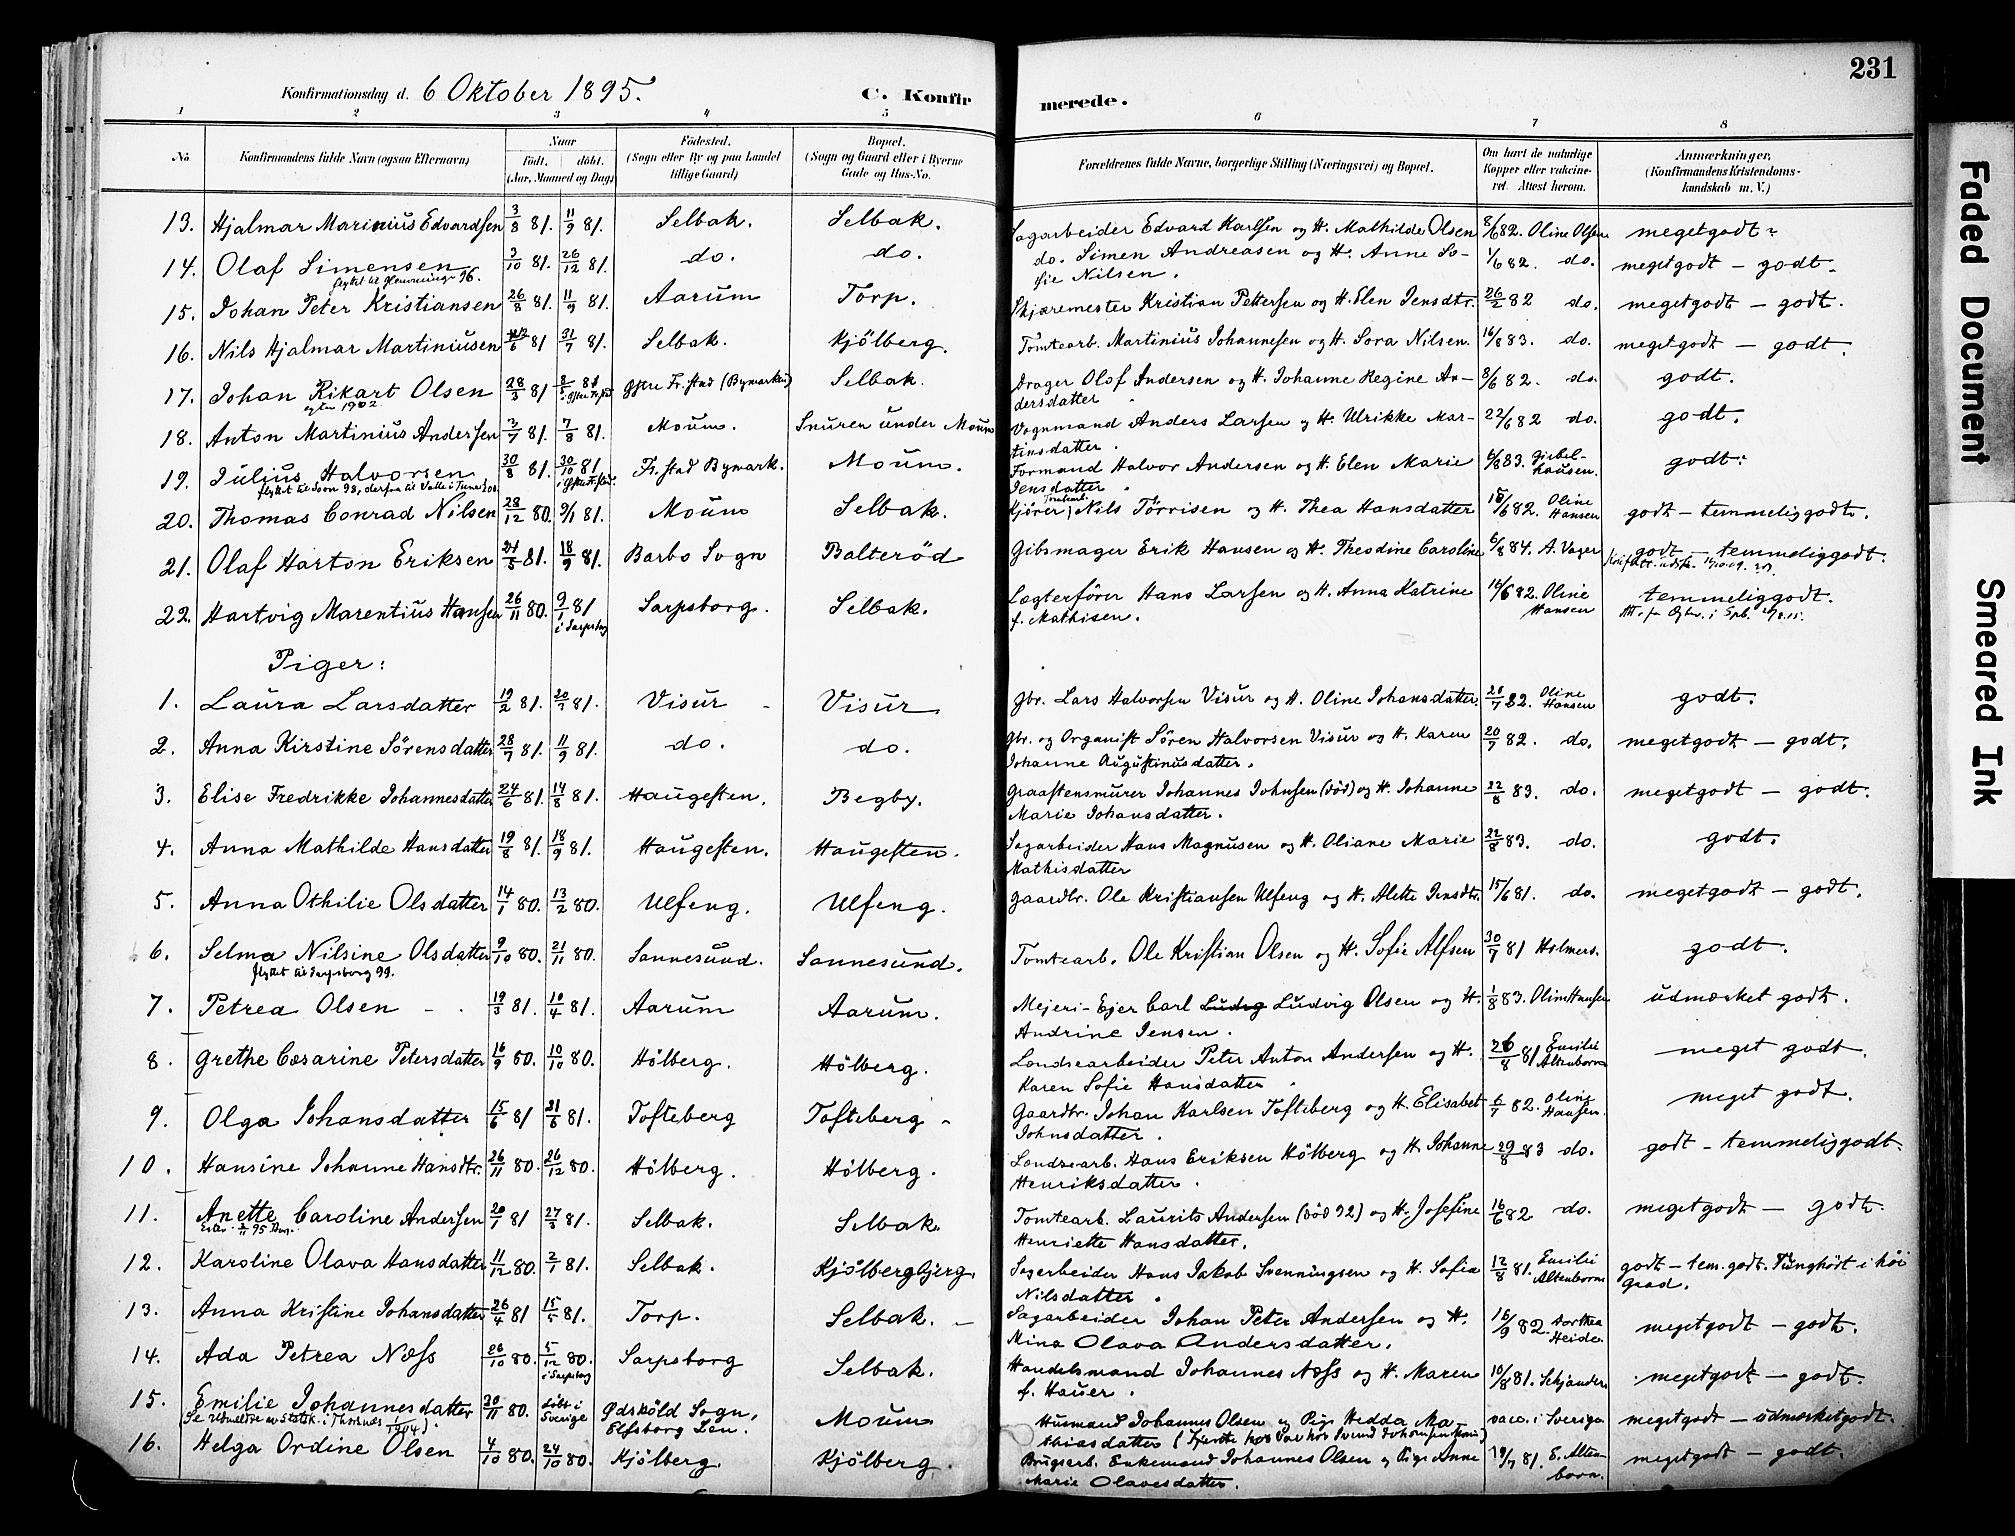 231
Konfirmationsdag d. 6 Oktober 1895.
C. Konfirmerede.
1 2 3 4 5 6 7 8
No. Konfirmandens fulde Navn (ogsaa Efternavn) Naar født. døbt. (Aar, Maaned og Dag) Fødested. (Sogn eller By og paa Landet tillige Gaard) Bopæl. (Sogn og Gaard eller i Byerne Gade og Hus-No. Forældrenes fulde Navne, borgerlige Stilling (Næringsvei) og Bopæl. Om havt de naturlige Kopper eller vaccineret. Attest herom. Anmærkninger. (Konfirmandens Kristendomskundskab m. V.)
13. Hjalmar Marinius Edvardsen 3/8 81. 11/9 81. Selbak. Selbak. Sagarbeider Edvard Karlsen og H. Mathilde Olsen 8/6 82. Oline Olsen megetgodt
14. Olaf Simensen 3/10 81. 26/12 81. do. do. do. Simen Andreasen og H. Anne Sofie Nilsen. 1/6 82. do. megetgodt – godt.
15. Johan Peter Kristiansen 26/8 81. 11/9 81. Aarum Torp. Skjæremester Kristian Pettersen og H. Elen Jensdtr. 26/2 82 do. megetgodt – godt.
16. Nils Hjalmar Martiniusen 81 31/7 81. Selbak. Kjölberg. Tomtearb. Martinius Johannesen og H. Sora Nilsen. 16/8 83. do. megetgodt – godt.
17. Johan Rikart Olsen 28/3 81 8/5 81 Gstre Fr.stad (Bymarken) Selbak. Drager Olof Andersen og H. Johanne Regine Andersdatter 8/6 82. do. godt.
18. Anton Martinius Andersen 3/7 81. 7/8 81. Moum. Snuren under Moum Vognmand Anders Larsen og H. Ulrikke Martinsdatter. 22/6 82 do. godt.
19. Julius Halvorsen 30/8 81. 30/10 81 Fr.stad Bymark. Moum. Formand Halvor Andersen og H. Elen Marie Jensdatter 6/8 83. godt.
20. Thomas Conrad Nilsen 28/12 80. 9/1 81. Moum Selbak. Kjører, Nils Törrisen og H. Thea Hansdatter 15/6 82. Oline Hansen godt – temmeliggodt.
21. Olaf Harton Eriksen 21/5 81. 18/9 81. Barbo Sogn Balterød Gibsmager Erik Hansen og H. Theodine Caroline 6/8 84. A. Vager godt – temmeliggodt.
22. Hartvig Marentius Hansen 26/11 80. 9/1 81 i Sarpsborg Sarpsborg. Selbak. Lægterförer Hans Larsen og H. Anna Katrine f. Mathisen. 14/6 82. Oline Hansen temmeliggodt.
Piger:
1. Laura Larsdatter 19/2 81. 20/3 81. Visur Visur Gbr. Lars Halvorsen Visur og H. Oline Johansdatter 20/7 82. Oline Hansen godt.
2. Anna Kirstine Sörensdatter 28/7 81. 11/9 81. do. do. Gbr. og Organist Sören Halvorsen Visur og H. Karen Johanne Augustinusdatter. 20/7 82. do. megetgodt – godt.
3. Elise Fredrikke Johannesdatter 24/6 81. 14/8 81. Haugesten. Begby. Graastensmurer Johannes Johnsen (död) og H. Johanne Marie Johansdatter. 22/8 83. do. megetgodt – godt.
4. Anna Mathilde Hansdatter 19/8 81. 18/9 81. Haugesten. Haugesten. Sagarbeider Hans Magnusen og H. Oliane Marie Mathisdatter 22/8 83. do. godt.
5. Anna Othilie Olsdatter 14/1 80. 13/2 80. Ulfeng. Ulfeng. Gaardbr. Ole Kristiansen Ulfeng og H. Alette Jensdtr. 15/6 81. do. megetgodt – godt.
6. Selma Nilsine Olsdatter 9/10 80. 21/11 80. Sannesund. Sannesund. Tomtearb. Ole Kristian Olsen og H. Sofie Alfsen 30/7 81 Holmers. godt.
flyttet til Sarpsborg 99.
7. Petrea Olsen 19/3 81. 10/4 81. Aarum Aarum. Mejeri-Ejer Carl Ludvig Olsen og H. Andrine Jensen. 1/8 83. Oline Hansen udmærket godt.
8. Grethe Cæsarine Petersdatter 16/9 80. 10/10 80. Hölberg. Hölberg. Londsearbeider Peter Anton Andersen og H. Karen Sofie Hansdatter 26/8 81. Emilie Altenborn meget godt.
9. Olga Johansdatter 15/6 81 21/8 81. Tofteberg Tofteberg Gaardbr. Johan Karlsen Tofteberg og H. Elisabet Johnsdatter. 6/7 82. Oline Hansen. meget godt.
10. Hansine Johanne Hansdtr. 26/11 80. 26/12 80. Hölberg. Hölberg. Londsearb. Hans Eriksen Hölberg og H. Johanne Henriksdatter. 29/8 83 do. godt – temmeliggodt.
11. Anette Caroline Andersen 20/1 81 27/3 81. Selbak. Selbak Tomtearb. Laurits Andersen (död 92) og H. Josefine Henriette Hansdatter. 16/6 82 do. megetgodt – godt.
12. Karoline Olava Hansdatter 11/12 80. 2/1 81. Selbak. Kjölbergbjerg. Sagarbeider Hans Jakob Svenningsen og H. Sofie Nilsdatter. 12/8 81. Emilie Altenborn godt – tem. godt. Tunghört i höi Grad.
13. Anna Kristine Johansdatter 26/4 81 15/5 81. Torp. Selbak. Sagarbeider Johan Peter Andersen og H. Mina Olava Andersdatter. 16/9 82. Dorthea Heide. megetgodt – godt.
14. Ada Petrea Næss 26/10 80. 5/12 80. i Sarpsborg Sarpsborg Selbak. Handelsmand Johannes Næss og H. Maren f. Hauer. 10/8 81. megetgodt – godt.
15. Emilie Johannesdatter 30/11 80. døbt i Sverige Ödsköld Sogn, Elfsborg Len. Moum Husmand Johannes Olsen og Pige Hedda Mathiasdatter vacc. i Sverige megetgodt – udmærketgodt.
16. Helga Ordine Olsen 4/10 80. 24/10 80. Kjölberg. Kjölberg. Brugsarb. Enkemand Johannes Olsen og Pige Anne Marie Olavesdatter. 19/7 81. E. Altenborn. megetgodt – godt.
Faded Document
Smeared Ink